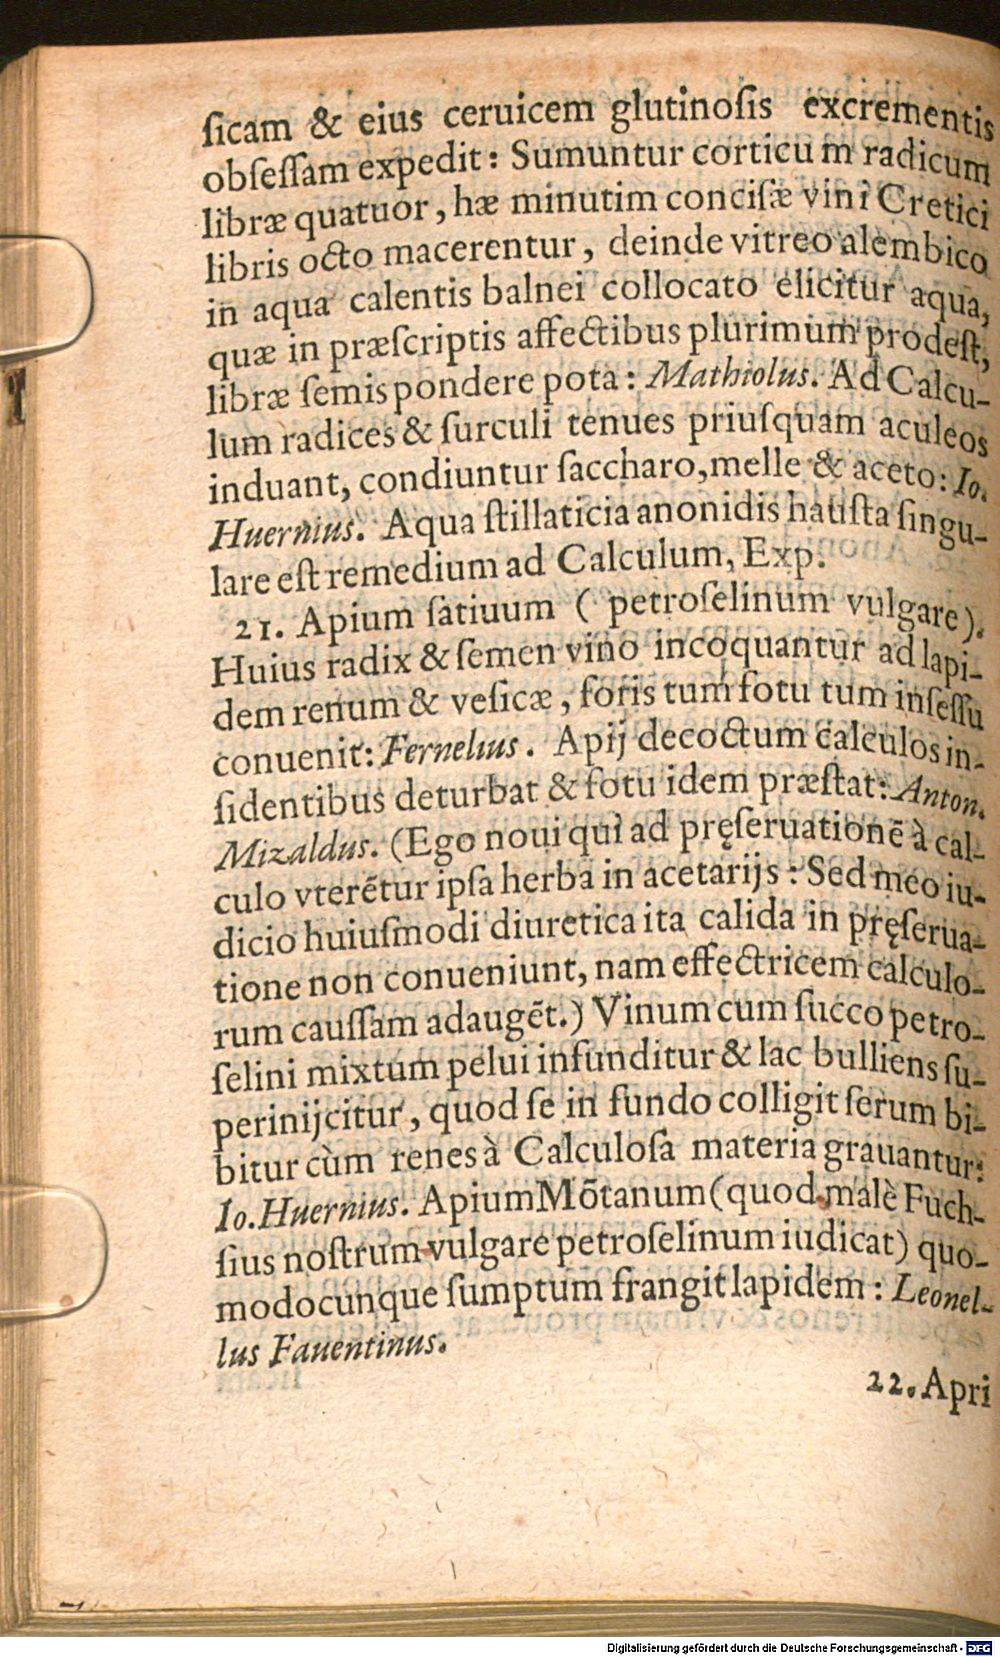 ſicam & eius ceruicem glutinoſis excrementis
obſeſſam expedit: Sumuntur corticum radicum
libræ quatuor, hæ minutim conciſæ vini Cretici
libris octo macerentur, deinde vitreo alembico
in aqua calentis balnei collocato elicitur aqua,
quæ in præſcriptis affectibus plurimum prodeſt,
libræ ſemis pondere pota: Mathiolus. Ad Calcu-
lum radices & ſurculi tenues priuſquam aculeos
induant, condiuntur ſaccharo, melle & aceto: Io.
Huernius. Aqua ſtillaticia anonidis hauſta ſingu-
lare eſt remedium ad Calculum, Exp.
21. Apium ſatiuum ( petroſelinum vulgare).
Huius radix & ſemen vino incoquantur ad lapi-
dem renum & veſicæ, foris tum fotu tum inſeſſu
conuenit: Fernelius. Apij decoctum calculos in-
ſidentibus deturbat & fotu idem præſtat: Anton.
Mizaldus. (Ego noui qui ad pręſeruationē à cal-
culo vterētur ipſa herba in acetarijs: Sed meo iu-
dicio huiuſmodi diuretica ita calida in pręſerua-
tione non conueniunt, nam effectricem calculo-
rum cauſſam adaugēt.) Vinum cum ſucco petro-
ſelini mixtum pelui infunditur & lac bulliens ſu-
perinijcitur, quod ſe in fundo colligit ſerum bi-
bitur cùm renes à Calculoſa materia grauantur:
Io. Huernius. Apium Mōtanum (quod malè Fuch-
ſius noſtrum vulgare petroſelinum iudicat) quo-
modocunque ſumptum frangit lapidem: Leonel-
lus Fauentinus.
22. Apri
Digitalisierung gefördert durch die Deutsche Forschungsgemeinschaft - DFG